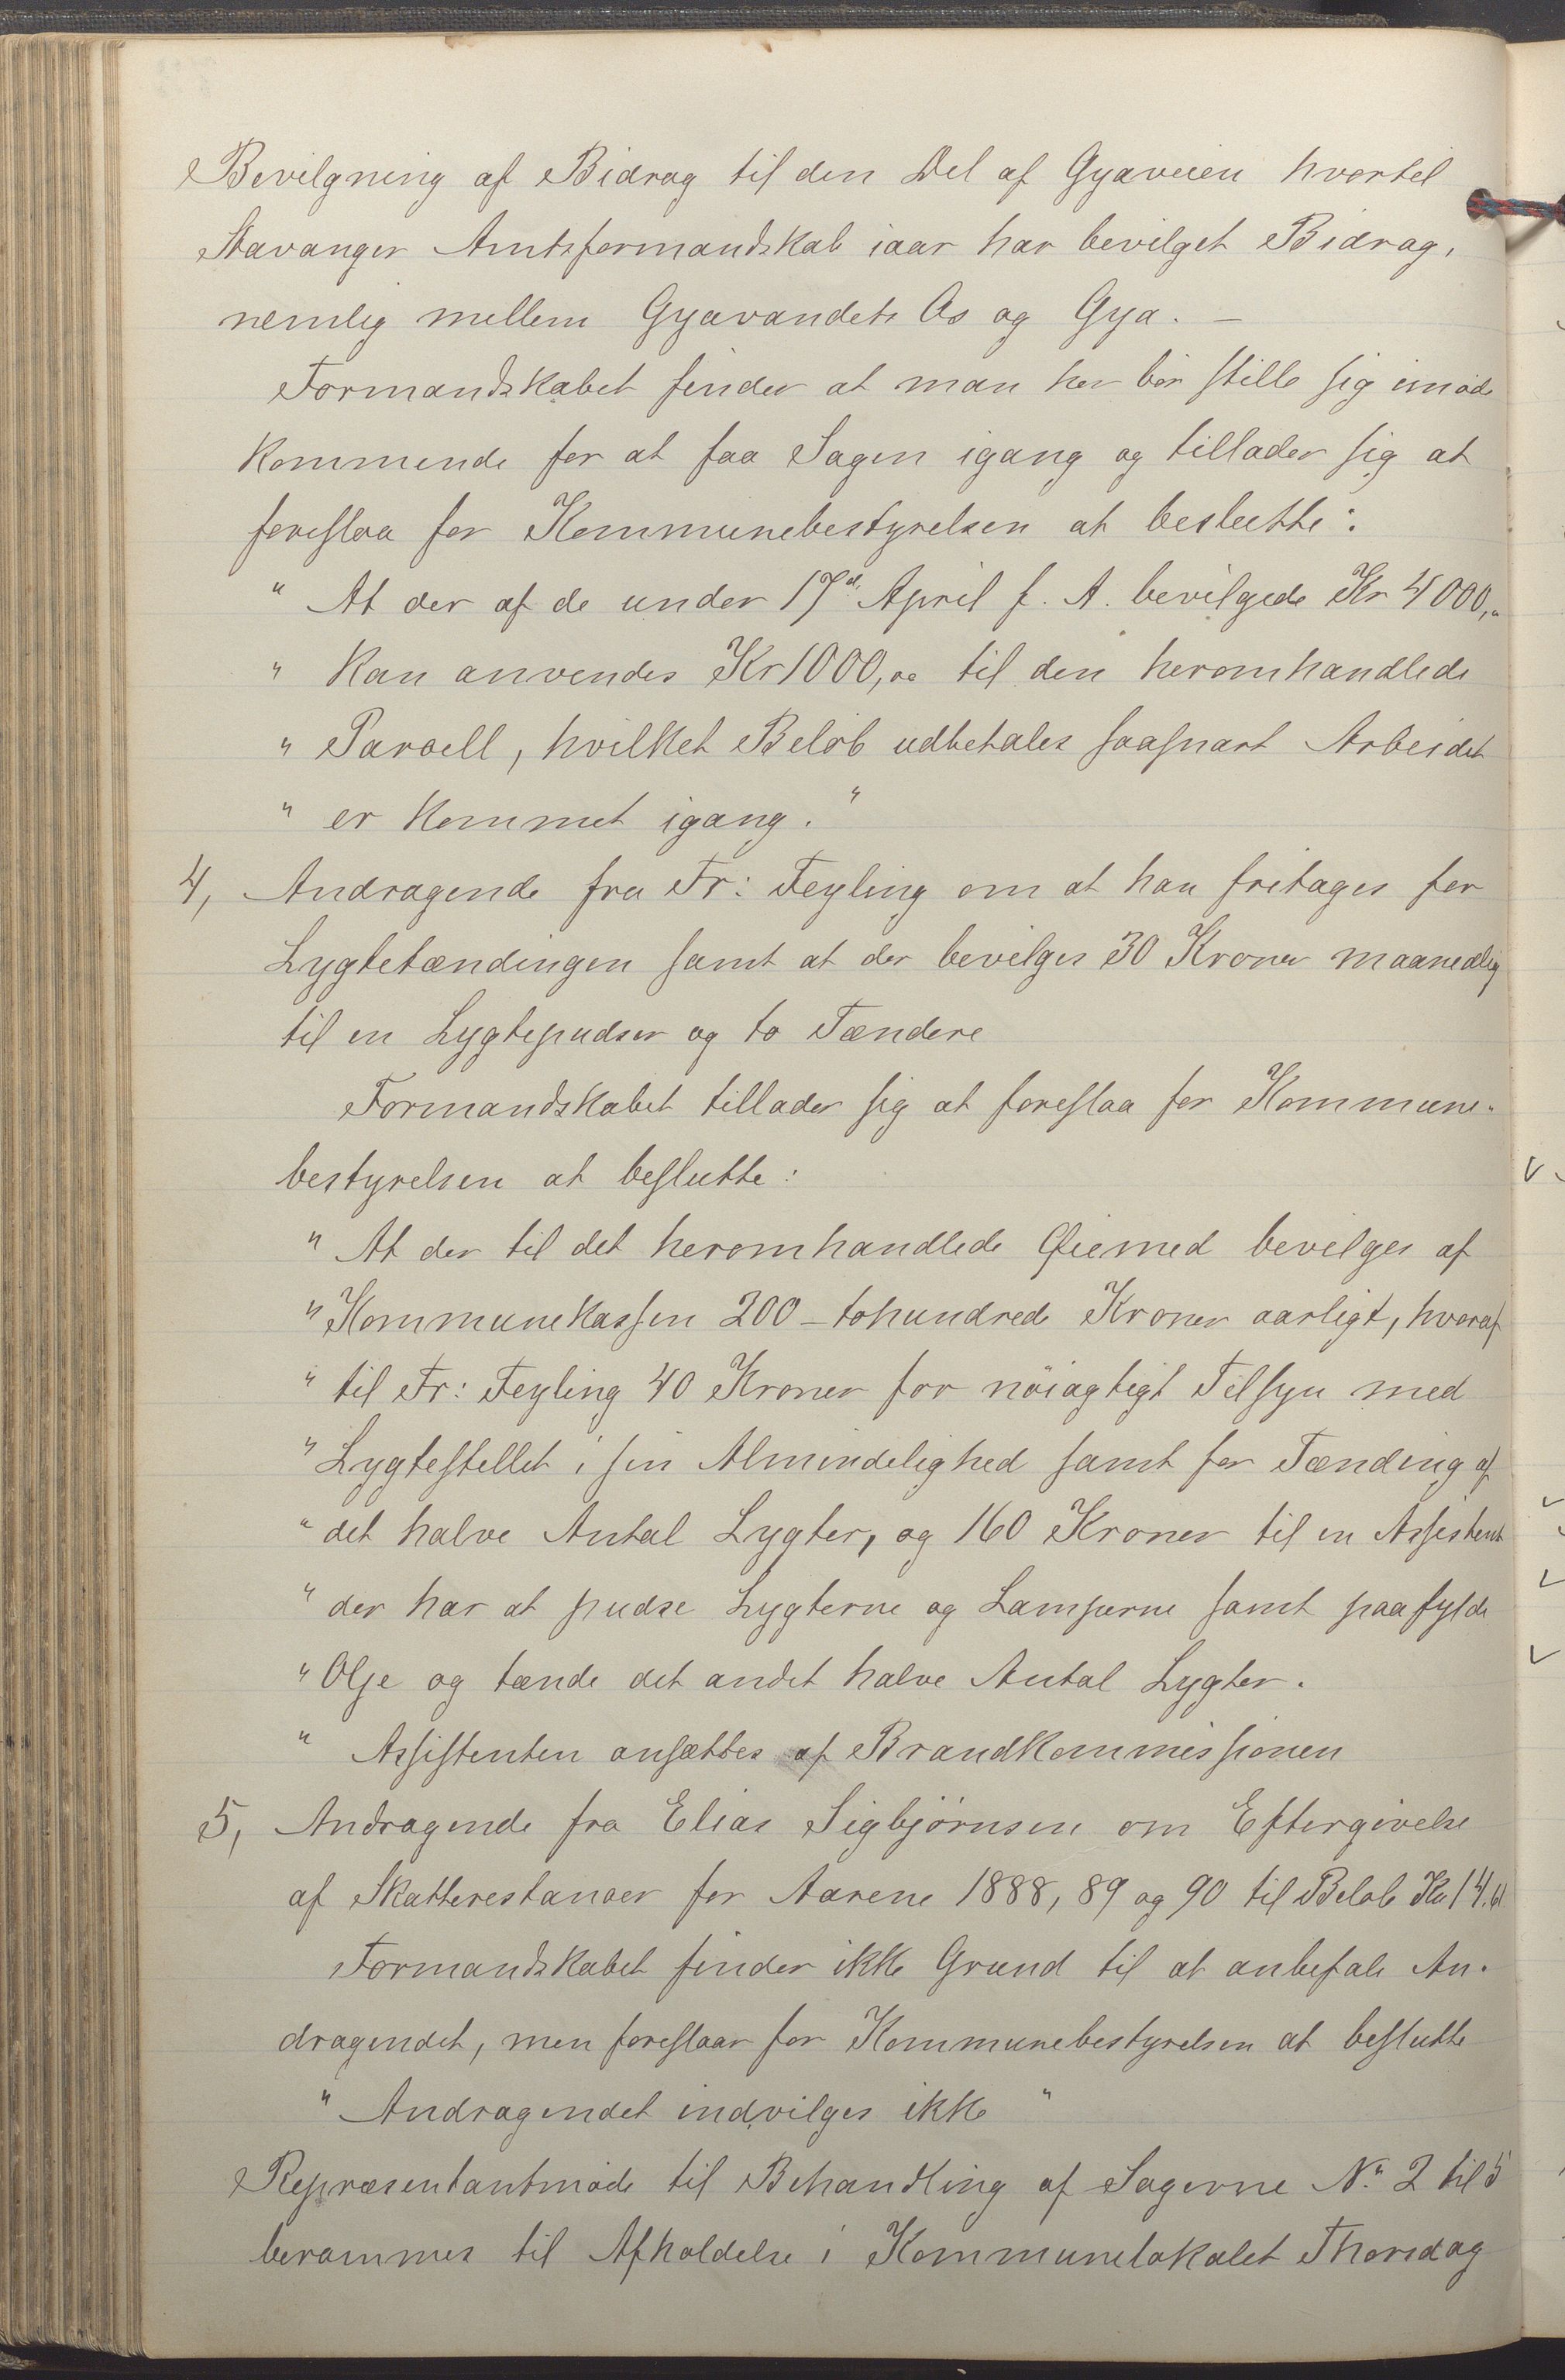 Bevilgning af Bidrag til den Del af Gyaveien hvortil
Stavanger Amtsformandskab iaar har bevilget Bidrag,
nemlig mellem Gyavandets Os og Gya. –
Formandskabet finder at man her bör stille sig imøde
kommende for at faa Sagen igang og tillader sig at
foreslaa for Kommunebestyrelsen at beslutte:
" At der af de under 17d. April f. A. bevilgede Kr 4000,"
" kan anvendes Kr 1000,00 til den heromhandlede
" Parcell, hvilket Beløb udbetales saasnart Arbeidet
" er kommet igang."
4, Andragende fra Fr: Feyling om at han fritages for
Lygtetændingen samt at der bevilges 30 Kroner maanedlig
til en Lygtepudser og to Tændere
Formandskabet tillader sig at foreslaa for Kommune-
bestyrelsen at beslutte:
" At der til det heromhandlede Øiemed bevilges af
" Kommunekassen 200 – tohundrede Kroner aarligt, hvoraf
" til Fr: Feyling 40 Kroner for nöiagtigt Tilsyn med
" Lygtestellet i sin Almindelighed samt for Tænding af
" det halve Antal Lygter, og 160 Kroner til en Assistent
" der har at pudse Lygterne og Lamperne samt paafylde
" Olje og tænde det andet halve Antal Lygter.
" Assistenten ansættes af Brandkommissionen
5, Andragende fra Elias Sigbjörnsen om Eftergivelse
af Skatterestancer for Aarene 1888, 89 og 90 til Beløb Kr 14.61
Formandskabet finder ikke Grund til at anbefale An-
dragendet, men foreslaar for Kommunebestyrelsen at beslutte
" Andragendet indvilges ikke "
Repræsentantmøde til Behandling af Sagerne No 2 til 5
berammes til Afholdelse i Kommunelokalet Thorsdag